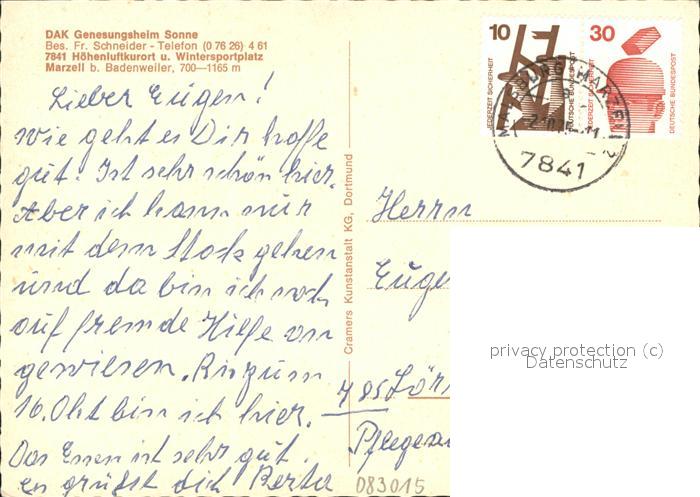 DAK Genesungsheim Sonne
Bes. Fr. Schneider - Telefon (0 76 26) 4 61
7841 Höhenluftkurort u. Wintersportplatz
Marzell b. Badenweiler, 700—1165 m
Lieber Eugen!
Wie geht es Dir hoffe
gut. Ist sehr schön hier.
Aber ich kann nur
mit dem Stock gehen
und da bin ich noch
auf fremde Hilfe an
gewiesen. Bis zum
16. Okt bin ich hier.
Das Essen ist sehr gut.
es grüßt dich Berta
Cramers Kunstanstalt KG, Dortmund
10
JEDERZEIT SICHERHEIT
DEUTSCHE BUNDESPOST
30
JEDERZEIT SICHERHEIT
DEUTSCHE BUNDESPOST
MARZELL
7841
Herrn
Euge
785 Lör
Pflege
083015
privacy protection (c)
Datenschutz